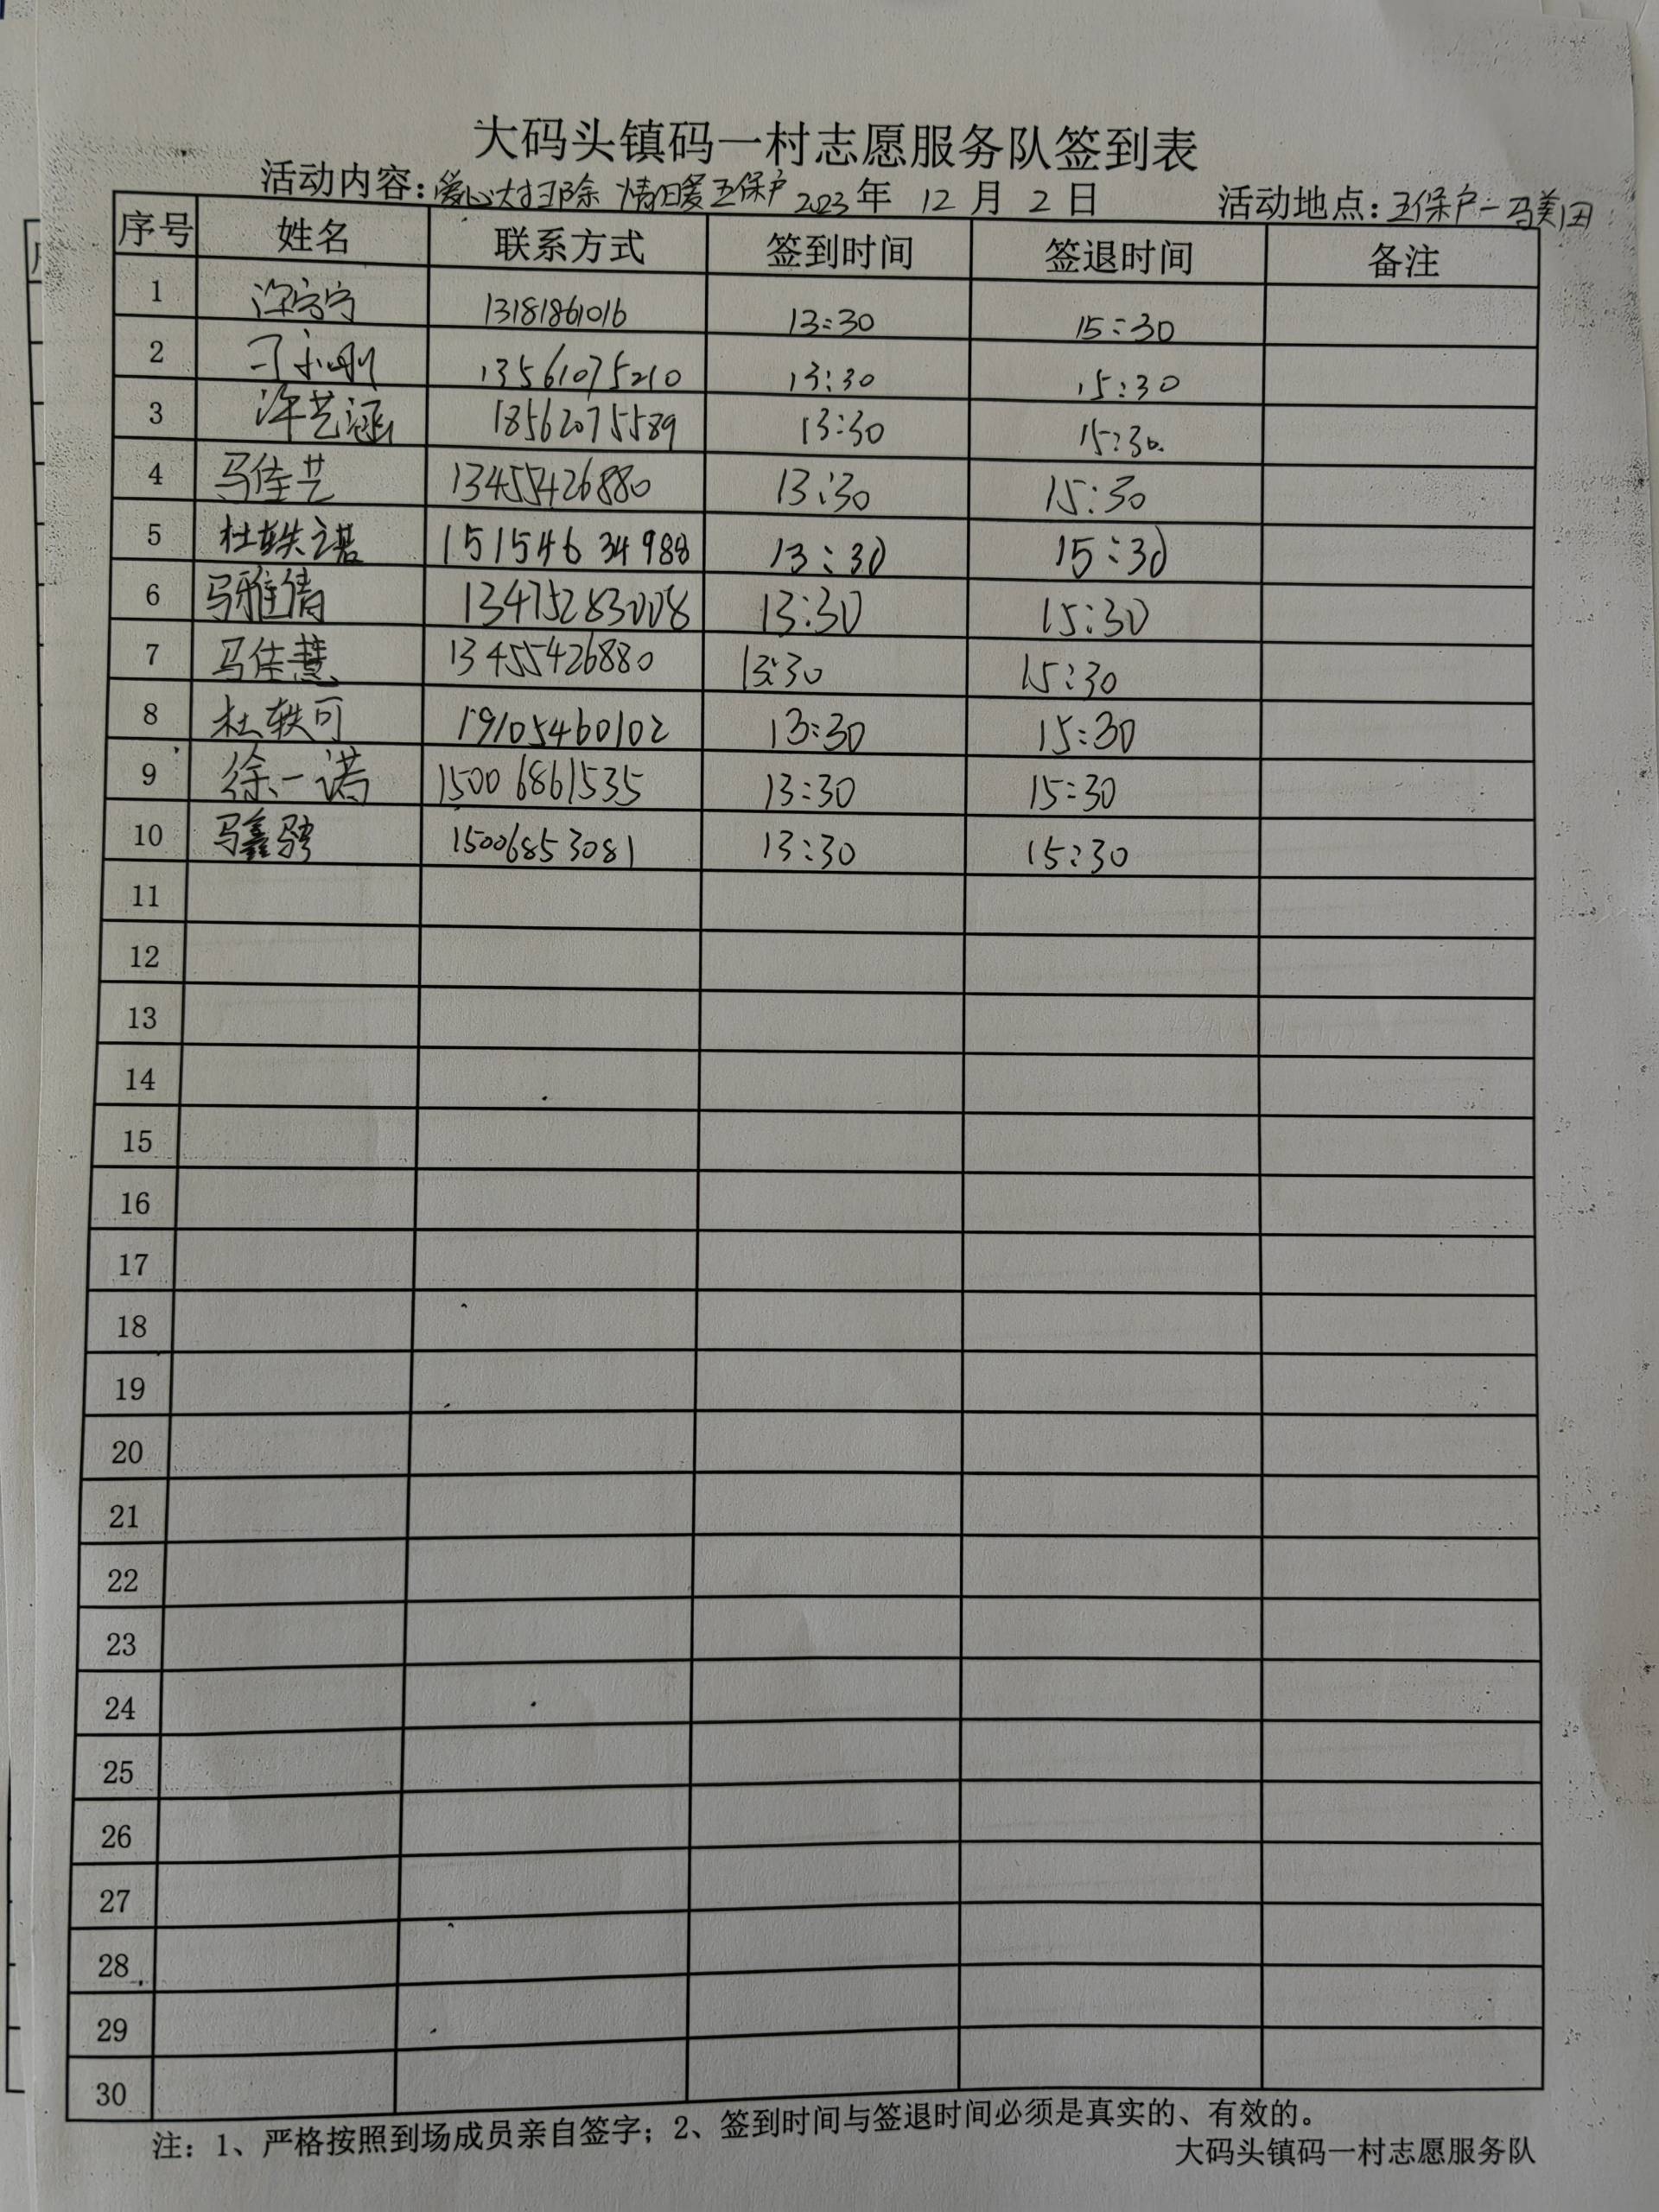 大码头镇码一村志愿服务队签到表
活动内容：爱心大扫除 情暖五保户 2023年 12月 2日 活动地点：五保户-马美田
序号 姓名 联系方式 签到时间 签退时间 备注
1 许宁宁 13181861016 13:30 15:30
2 刁小刚 13561075210 13:30 15:30
3 许艺涵 18562075589 13:30 15:30
4 马佳艺 13455426880 13:30 15:30
5 杜轶诺 15154634988 13:30 15:30
6 马雅倩 13475283008 13:30 15:30
7 马佳慧 13455426880 13:30 15:30
8 杜轶可 19105460102 13:30 15:30
9 徐一诺 15006861535 13:30 15:30
10 马鑫骋 15006853081 13:30 15:30
11
12
13
14
15
16
17
18
19
20
21
22
23
24
25
26
27
28
29
30
注：1、严格按照到场成员亲自签字；2、签到时间与签退时间必须是真实的、有效的。
大码头镇码一村志愿服务队